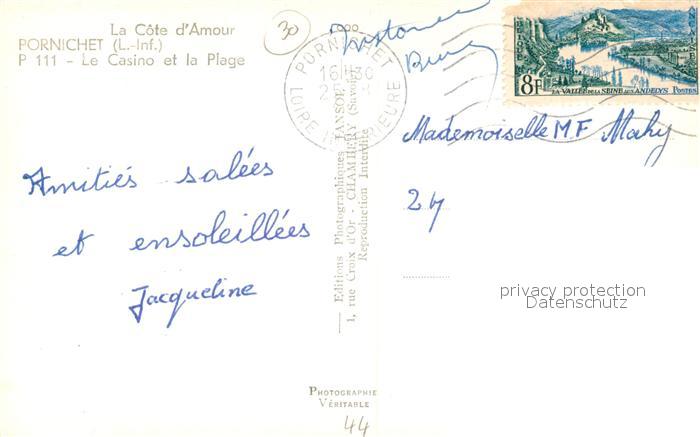 La Côte d'Amour
PORNICHET (L.-Inf.)
P 111 - Le Casino et la Plage
30
PORNICHET
16 30
LOIRE INFERIEURE
8F
LA VALLÉE DE LA SEINE AUX ANDELYS POSTES
Mademoiselle M F Mahy
24
Amitiés salées
et ensoleillées
Jacqueline
Editions Photographiques
1, rue Croix d'Or - CHAMBÉRY (Savoie)
Reproduction Interdite
privacy protection
Datenschutz
PHOTOGRAPHIE
VÉRITABLE
44